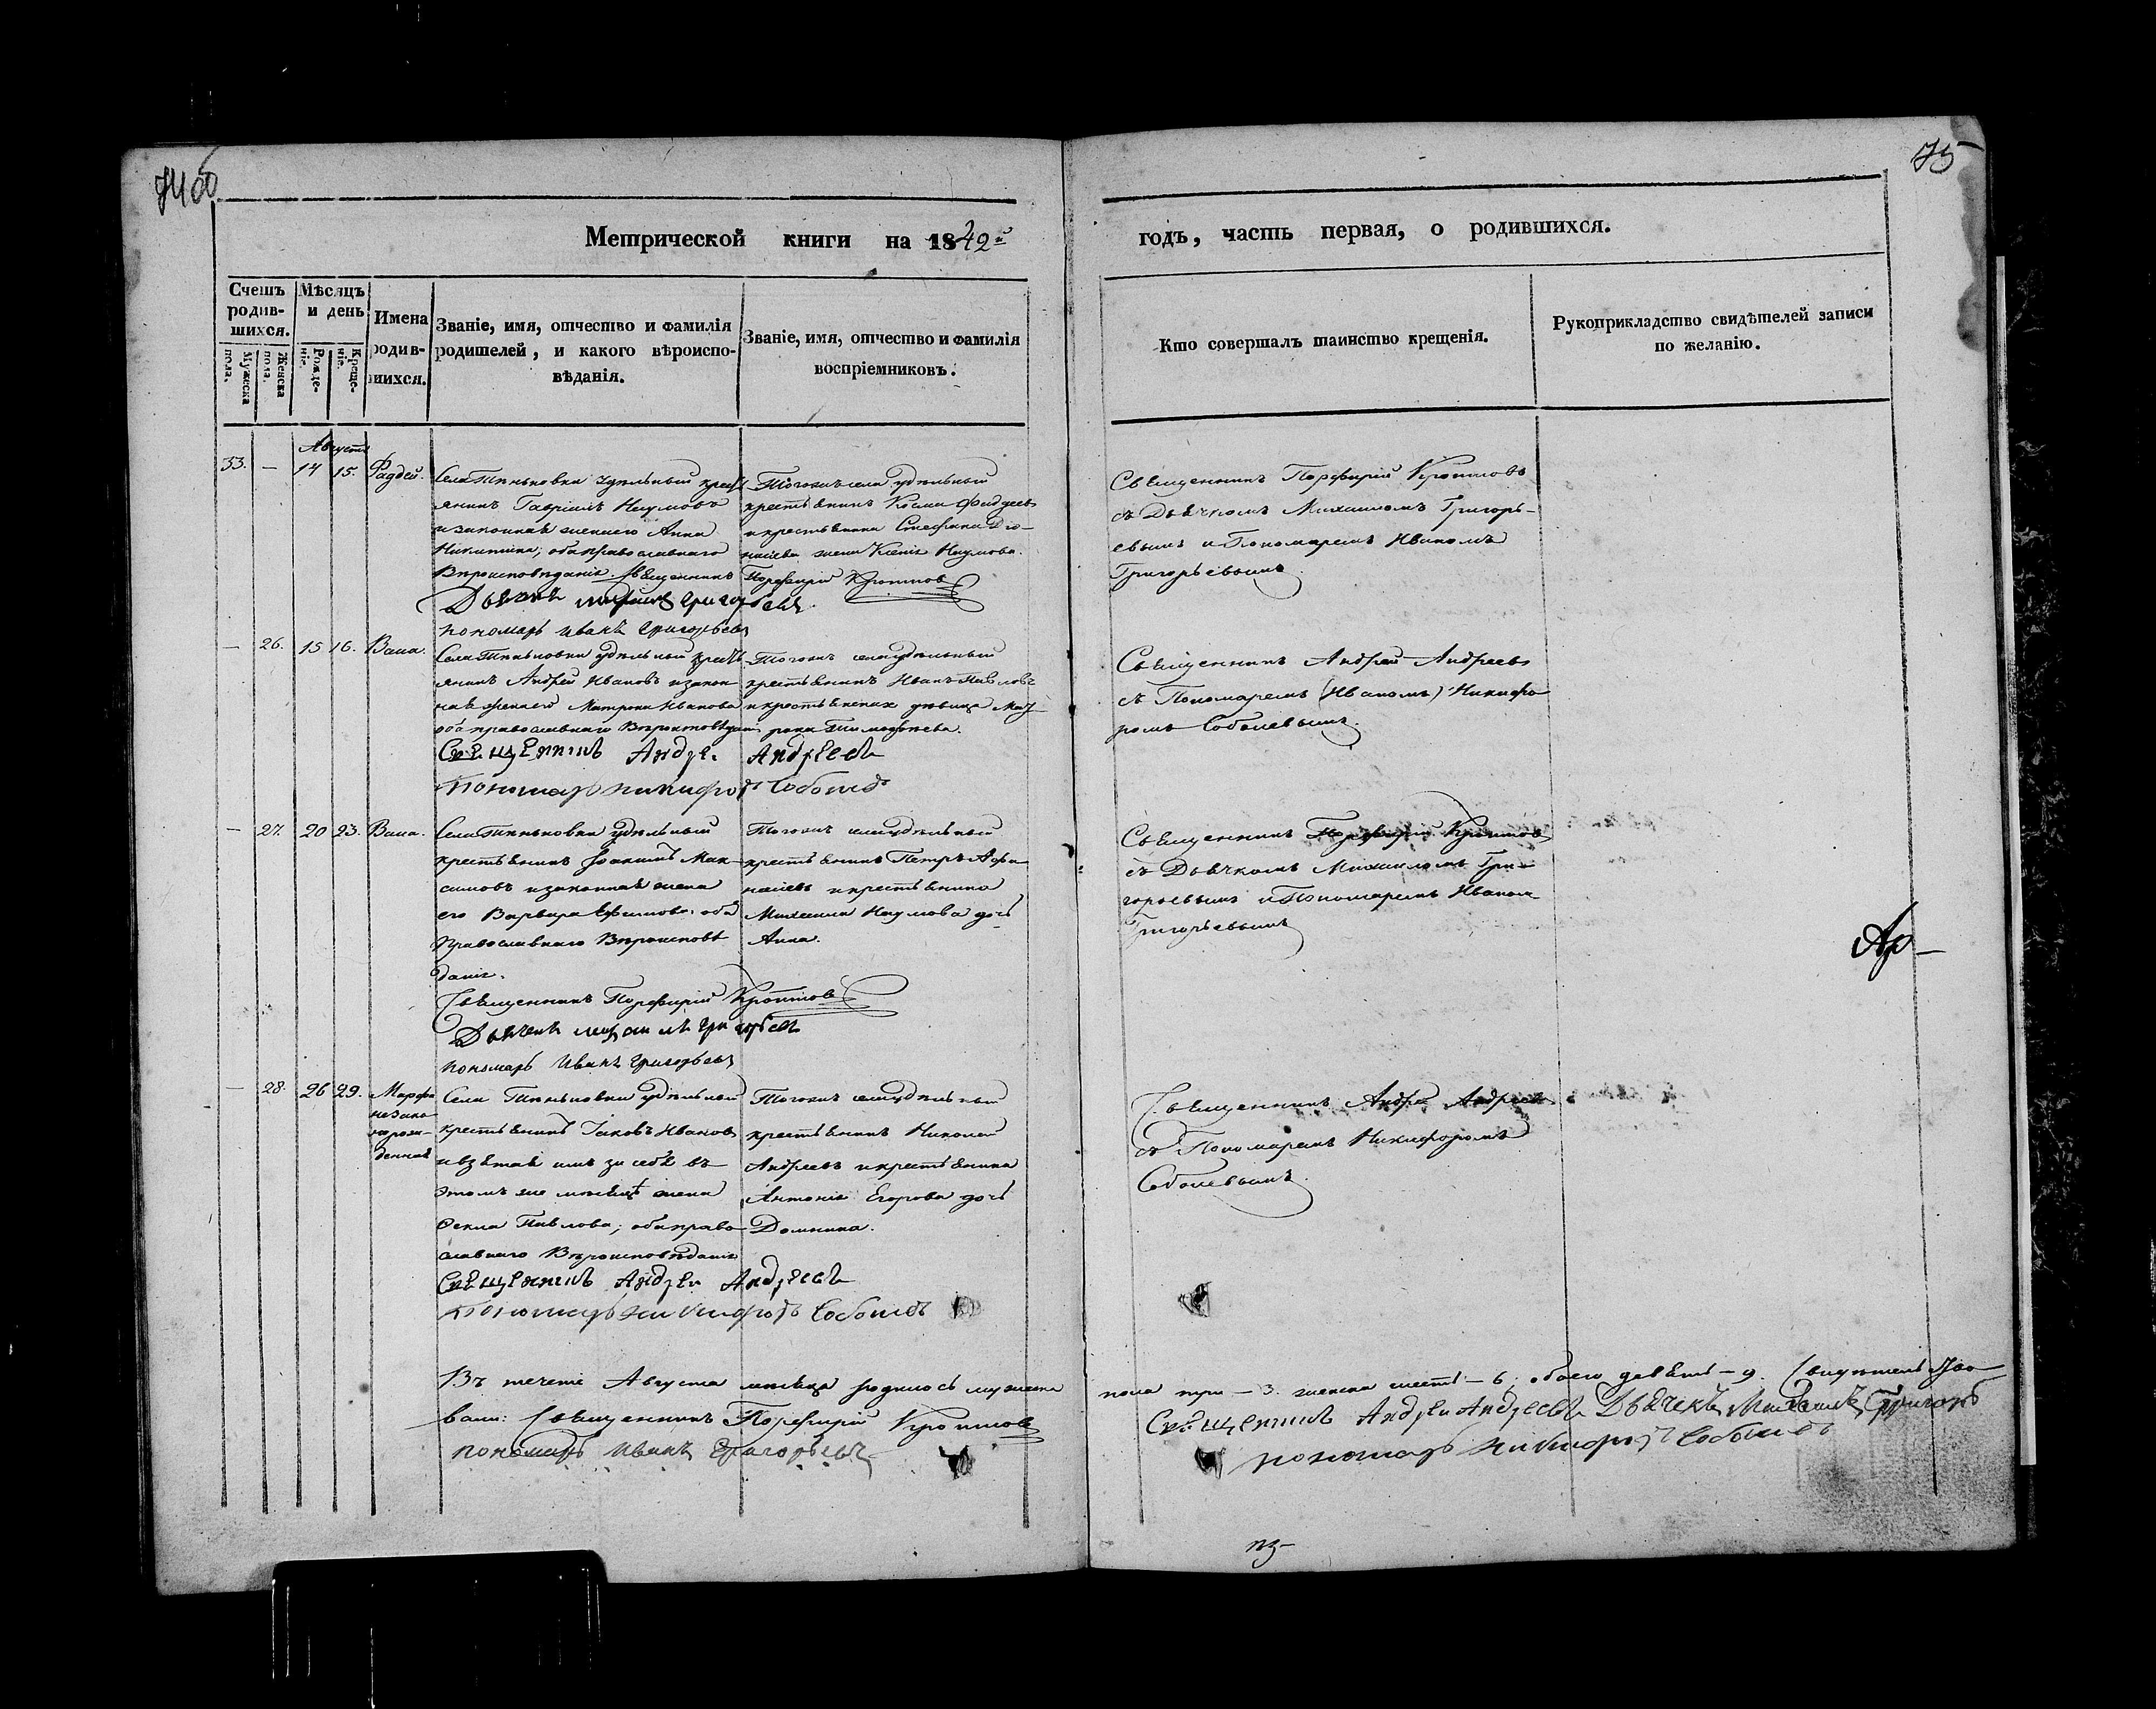 74 об
75
Метрической книги на 1842й
годъ, часть первая, о родившихся.
Счетъ родив-шихся.
Мужеска пола.
Женска пола.
Мѣсяцъ и день
Рожде-нія.
Креще-нія.
Имена родив-шихся.
Званіе, имя, отчество и фамилія
родителей, и какого вѣроиспо-
вѣданія.
Званіе, имя, отчество и фамилія
воспріемниковъ.
Кто совершалъ таинство крещенія.
Рукоприкладство свидѣтелей записи
по желанію.
Августа
33. — 14 15. Фаддей.
Села Тиньковки удѣльный кресть
янинъ Гавріилъ Наумовъ
и законная жена его Анна
Никитина; оба православнаго
Вѣроисповѣданія. Священникъ Порфирій Кроптовъ
Дьячекъ Михаилъ Григорьевъ
пономарь Иванъ Григорьевъ
Тогожъ села удѣльный
крестьянинъ Косма Фаддеевъ
и крестьянина Стефана Діо-
нисіева жена Ксенія Наумова.
Священникъ Порфирій Кроптовъ
съ Дьячкомъ Михаиломъ Григорь-
евымъ и Пономаремъ Иваномъ
Григорьевымъ
— 26. 15 16. Васса.
Села Тиньковки удѣльный кресть
янинъ Андрей Ивановъ и закон
ная жена его Матрона Иванова
оба православнаго Вѣроисповѣданія
Священникъ Андрей Андреевъ
Пономарь Никифоръ Соболевъ
Тогожъ села удѣльный
крестьянинъ Иванъ Павловъ
и крестьянская дѣвица Мат
рона Тимофеева.
Священникъ Андрей Андреевъ
съ Пономаремъ (Иваномъ) Никифо
ромъ Соболевымъ.
— 27. 20 23. Васса.
Села Тиньковки удѣльный
крестьянинъ Іоакимъ Мак
симовъ и законная жена
его Варвара Ефимова; оба
православнаго Вѣроисповѣ
данія.
Священникъ Порфирій Кроптовъ
Дьячекъ Михаилъ Григорьевъ
пономарь Иванъ Григорьевъ
Тогожъ села удѣльный
крестьянинъ Петръ Афа
насіевъ и крестьянина
Михаила Наумова дочь
Анна.
Священникъ Порфирій Кроптовъ
съ Дьячкомъ Михаиломъ Гри-
горьевымъ и Пономаремъ Иваном
Григорьевымъ
— 28. 26 29. Марфа
незако
норож-
денная
Села Тиньковки удѣльный
крестьянинъ Іаковъ Ивановъ
и взятая имъ за себя въ
этомъ же мѣсяцѣ жена
Фекла Павлова; оба право
славнаго Вѣроисповѣданія
Священникъ Андрей Андреевъ
Пономарь Никифоръ Соболевъ
Тогожъ села удѣльный
крестьянинъ Николай
Андреевъ и крестьянина
Антонія Егорова дочь
Домника.
Священникъ Андрей Андреевъ
съ Пономаремъ Никифоромъ
Соболевымъ.
Въ теченіе Августа мѣсяца родилось мужеска
пола три — 3. женска шесть — 6. обоего девять — 9. Свидѣтельство
вали: Священникъ Порфирій Кроптовъ
Священникъ Андрей Андреевъ Дьячекъ Михаилъ Григорь
пономарь Иванъ Григорьевъ
пономарь Никифоръ Соболевъ